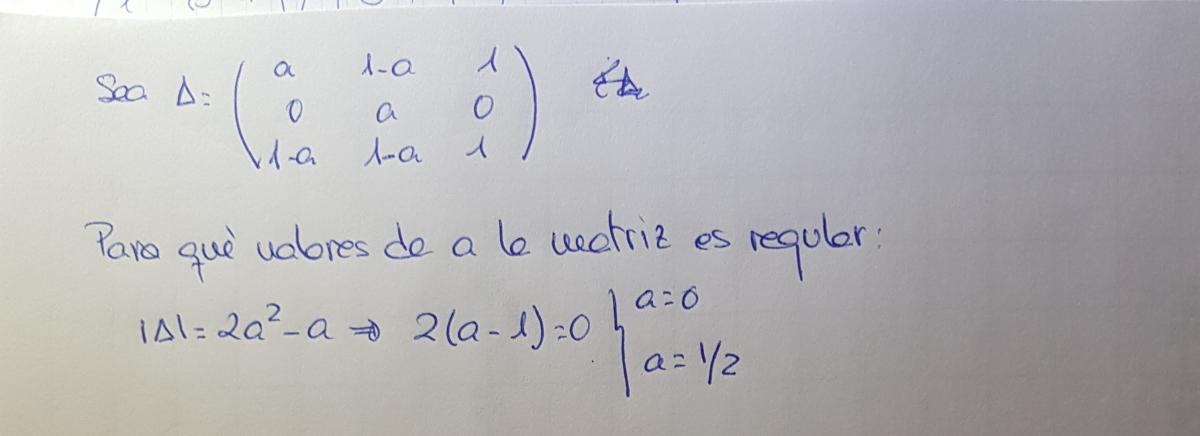 Sea Δ= ( a 1-a 1
0 a 0
1-a 1-a 1 )
Para què valores de a la matriz es regular:
|Δ|= 2a²-a ⇒ 2(a-1)=0 { a=0
a=1/2